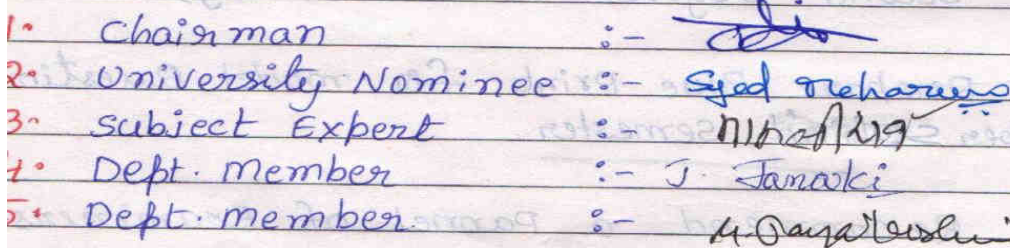 1. Chairman :-
2. University Nominee :- Syed
3. Subject Expert :-
4. Dept. member :- J. Janaki
5. Dept. member. :-